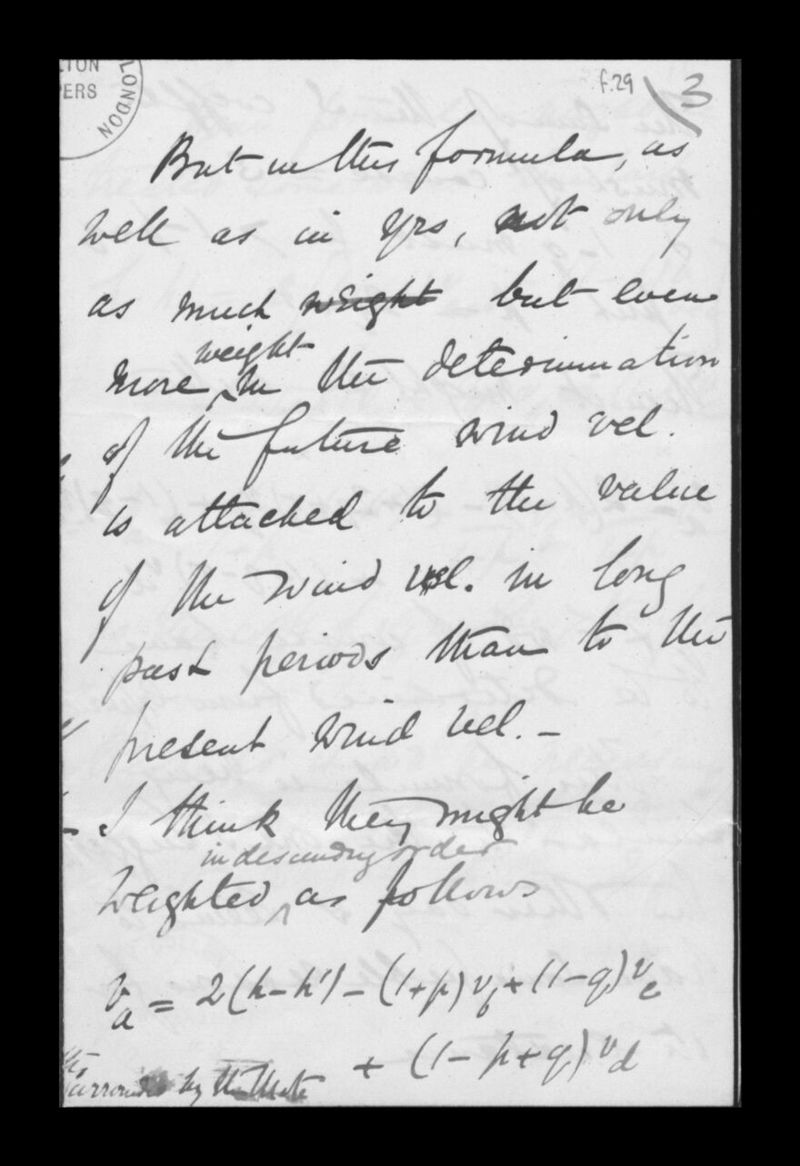 LTON
ERS
LONDON
f.29
3
But in this formula, as
well as in yrs, not only
as much weight but even
weight
more in the determination
of the future wind vel.
is attached to the value
of the wind vel. in long
past periods than to the
present wind vel. –
I think they might be
in descending order
weighted as follows
v_a = 2(h-h') - (1+p) v_b + (1-q) v_c
+ (1-p+q) v_d
by the Mete